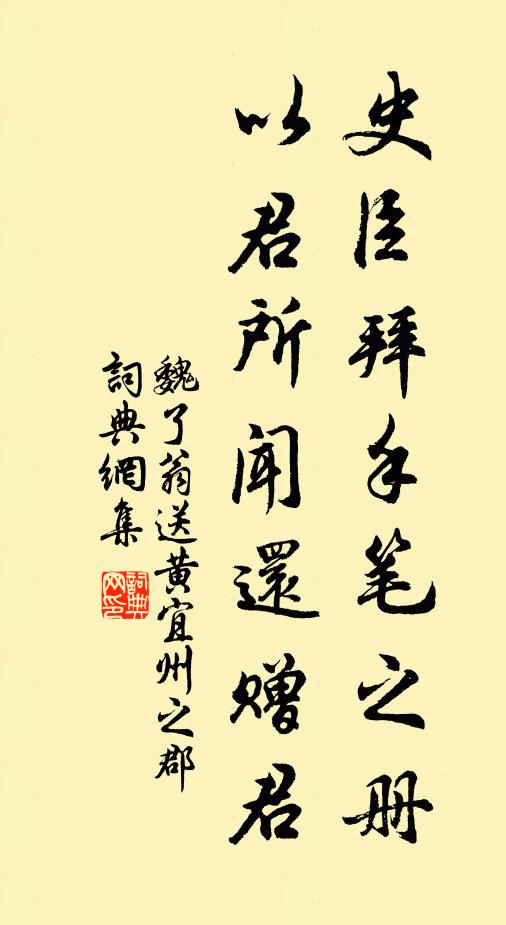 史臣拜手笔之册
以君所闻還赠君
魏了翁送黄宜州之郡
詞典網集
詞典网印